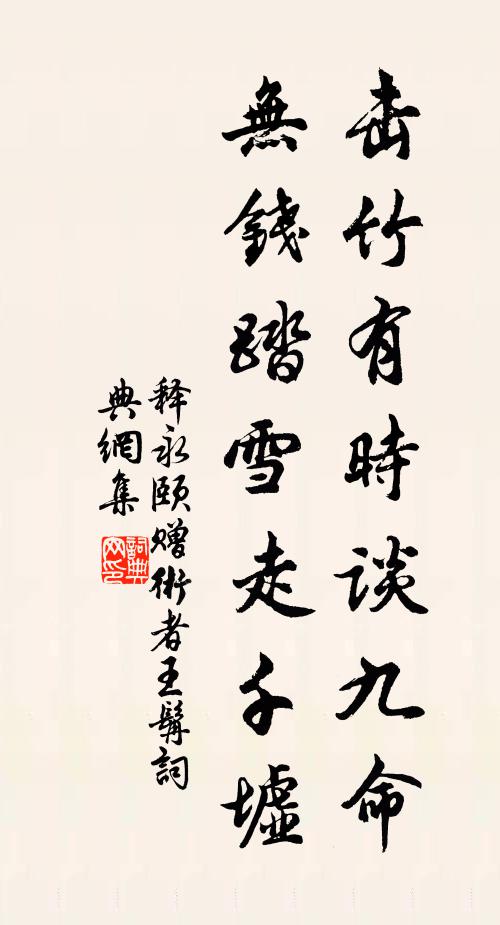 击竹有時談九命
無錢踏雪走千墟
释永頤赠術者王髯詞
典網集
詞典网印